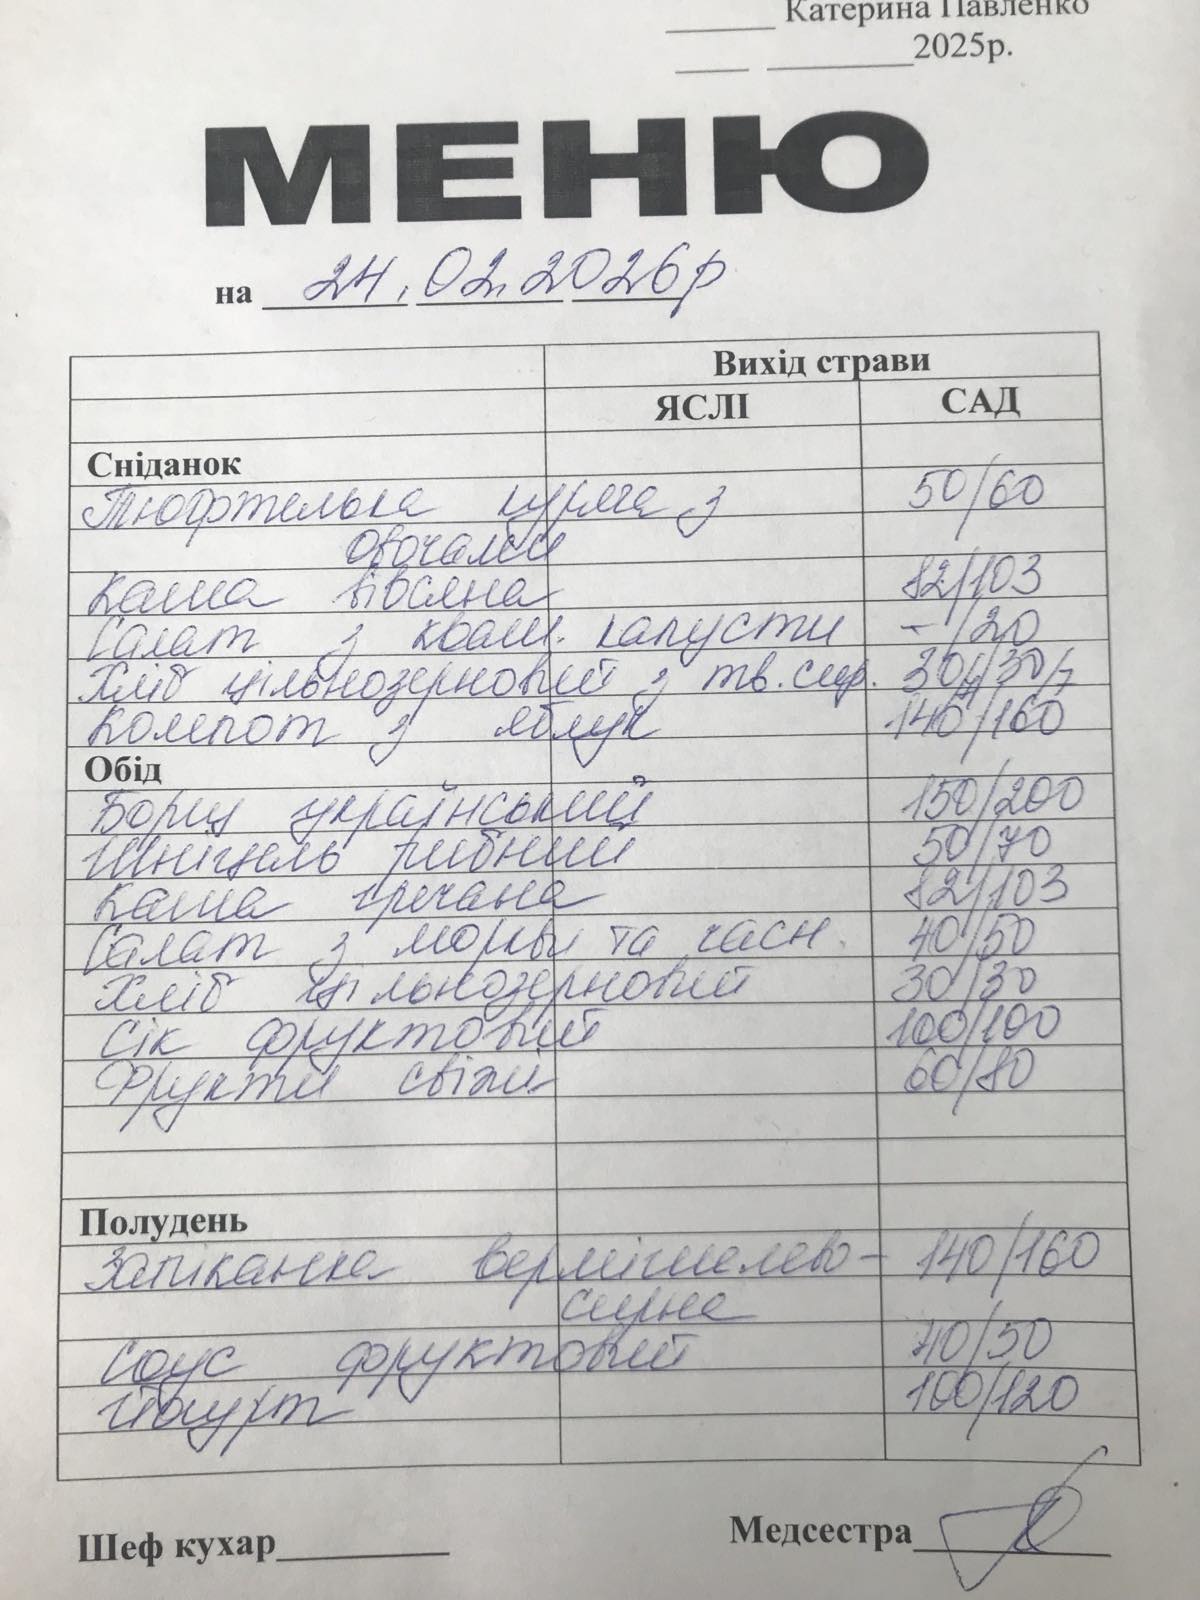 Катерина Павленко
2025р.
МЕНЮ
на 24.02.2026р
Вихід страви
ЯСЛІ САД
Сніданок
Тюфтелька куряча з 50/60
овочами
Каша вівсяна 82/103
Салат з кваш. капусти - /20
Хліб цільнозерновий з тв.сир. 30/4/30/7
Компот з яблук 140/160
Обід
Борщ український 150/200
Шніцель рибний 50/70
Каша гречана 82/103
Салат з моркви та часн. 40/50
Хліб цільнозерновий 30/30
Сік фруктовий 100/100
Фрукти свіжі 60/80
Полудень
Запіканка вермішелево- 140/160
сирна
Соус фруктовий 40/50
Йогурт 100/120
Шеф кухар
Медсестра